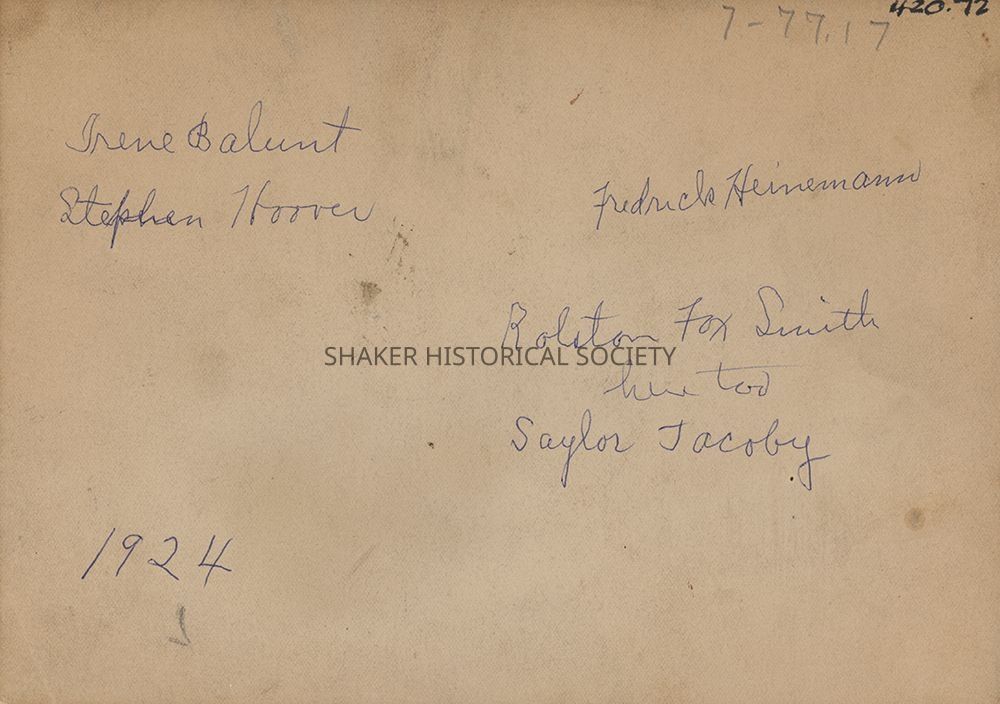 420.72
7-77.17
Irene Balunt
Stephen Hoover
Fredrick Heinemann
Rolston Fox Smith
SHAKER HISTORICAL SOCIETY
here too
Saylor Jacoby
1924